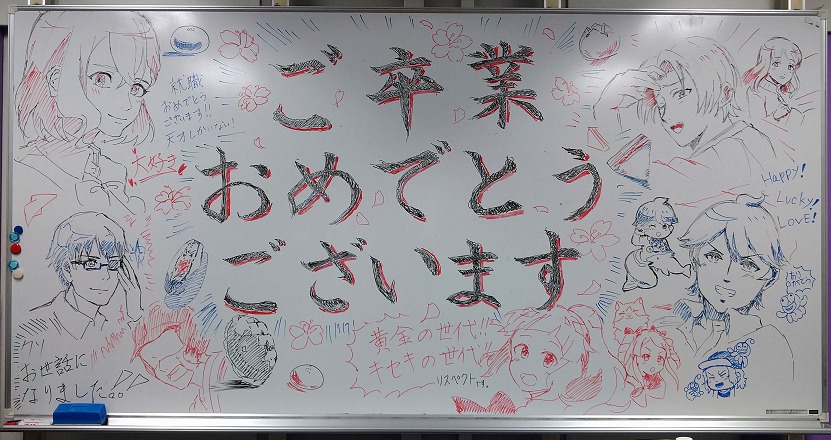 ご卒業
おめでとう
ございます
就職
おめでとう
ございます!!
天才しかいない!
大好き
Happy!
Lucky!
LOVE!
黄金の世代!!
キセキの世代!!
リスペクトです。
お世話に
なりました!!